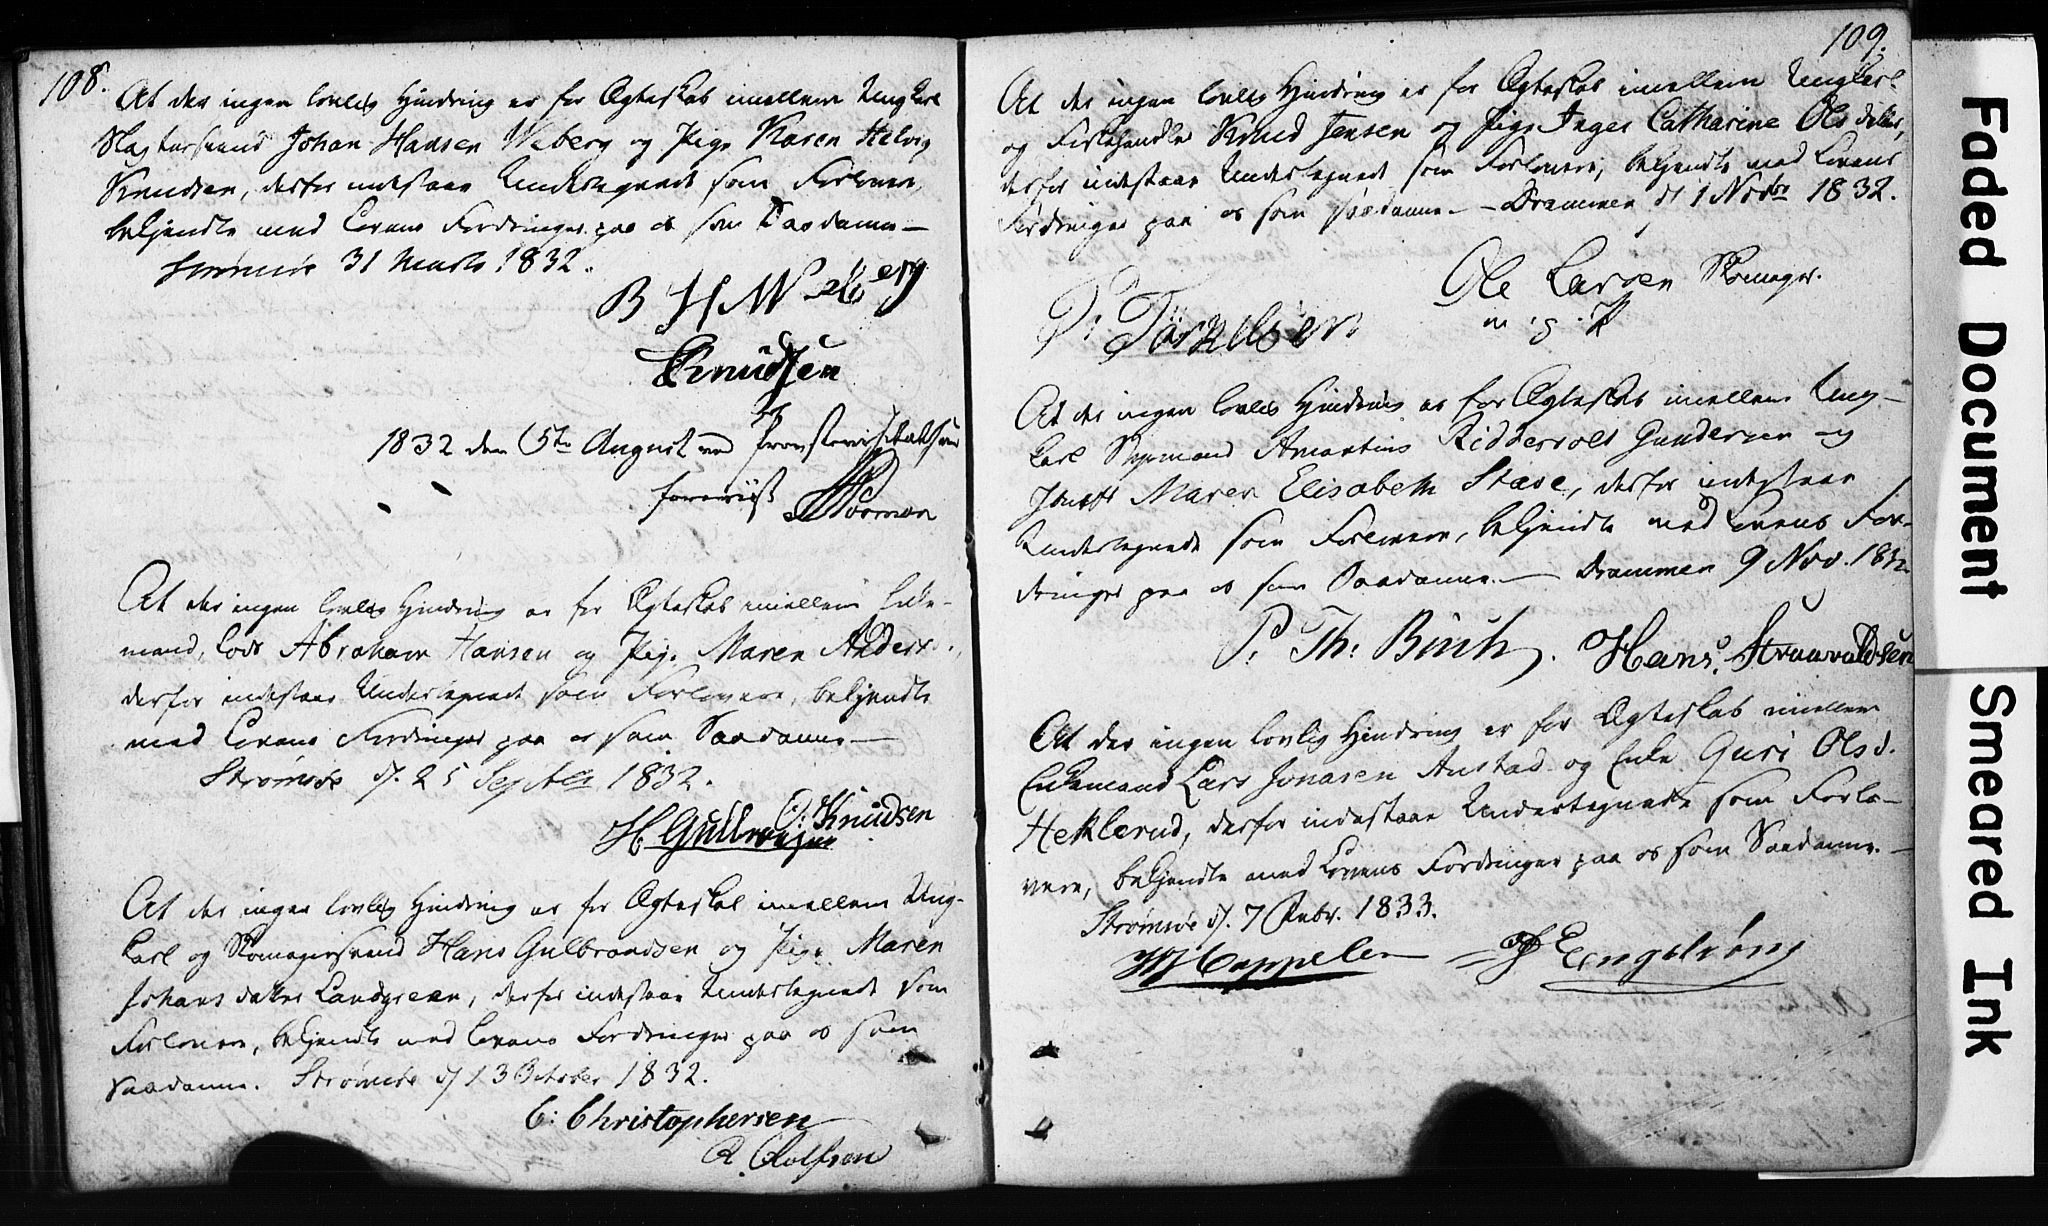 108.
At der ingen lovlig Hindring er for Ægteskab imellem Ungkarl
Slagtersvend Johan Hansen Weberg og Pige Karen Helvig
Knudsen, derfor indestaae Undertegnede som Forlovere,
bekjendte med Lovens Fordringer paa os som Saadanne —
Strømsöe 31 Marts 1832.
B H Weberg
Knudsen
1832 den 15te August ved Provstevisitatsen
foreviist
At der ingen lovlig Hindring er for Ægteskab imellem Enke-
mand, Lods Abraham Hansen og Pige Maren Anders.,
derfor indestaae Undertegnede som Forlovere, bekjendte
med Lovens Fordringer paa os som Saadanne —
Strømsöe d. 25 Septbr 1832.
O: Knudsen
H Gulbransen
At der ingen lovlig Hindring er for Ægteskab imellem Ung-
karl og Skomagersvend Hans Gulbrandsen og Pige Maren
Johansdatter Landgreen, derfor indestaae Undertegnede som
Forlovere, bekjendte med Lovens Fordringer paa os som
Saadanne. Strømsöe d 13 October 1832.
C: Christophersen
R. Rolfsen
109.
At der ingen lovlig Hindring er for Ægteskab imellem Ungkarl
og Fiskehandler Knud Jensen og Pige Inger Catharine Olsdatter,
derfor indestaae Undertegnede som Forlovere, bekjendte med Lovens
Fordringer paa os som saadanne — Drammen d 1 Novbr 1832.
Ole Larsen Skomager.
m. p. P.
P: Törkelsen
At der ingen lovlig Hindring er for Ægteskab imellem Ung-
karl Styrmand Amantius Riddervold Gundersen og
Jomfr Maren Elisabeth Stave, derfor indestaae
Undertegnede som Forlovere, bekjendte med Lovens For-
dringer paa os som Saadanne. — Drammen 9 Nov. 1832
P. Th: Buch. Hans
At der ingen lovlig Hindring er for Ægteskab imellem
Enkemand Lars Jonasen Austad og Enke Guri Olsd.
Heklerud, derfor indestaae Undertegnede som Forlo-
vere, bekjendte med Lovens Fordringer paa os som Saadanne. —
Strømsöe d. 7 Febr. 1833.
Cappelen Engström
Faded Document
Smeared Ink